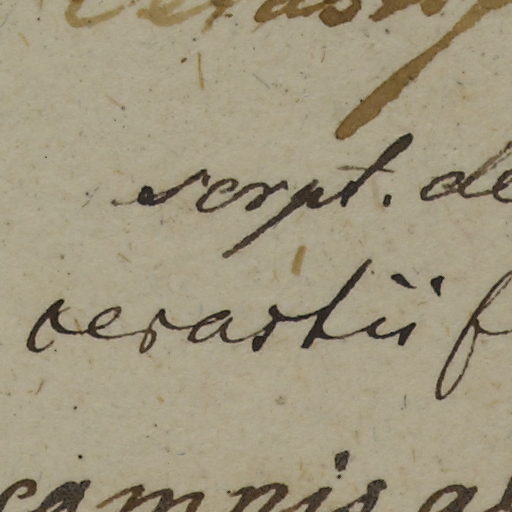 script. de
cerastii f
campis a